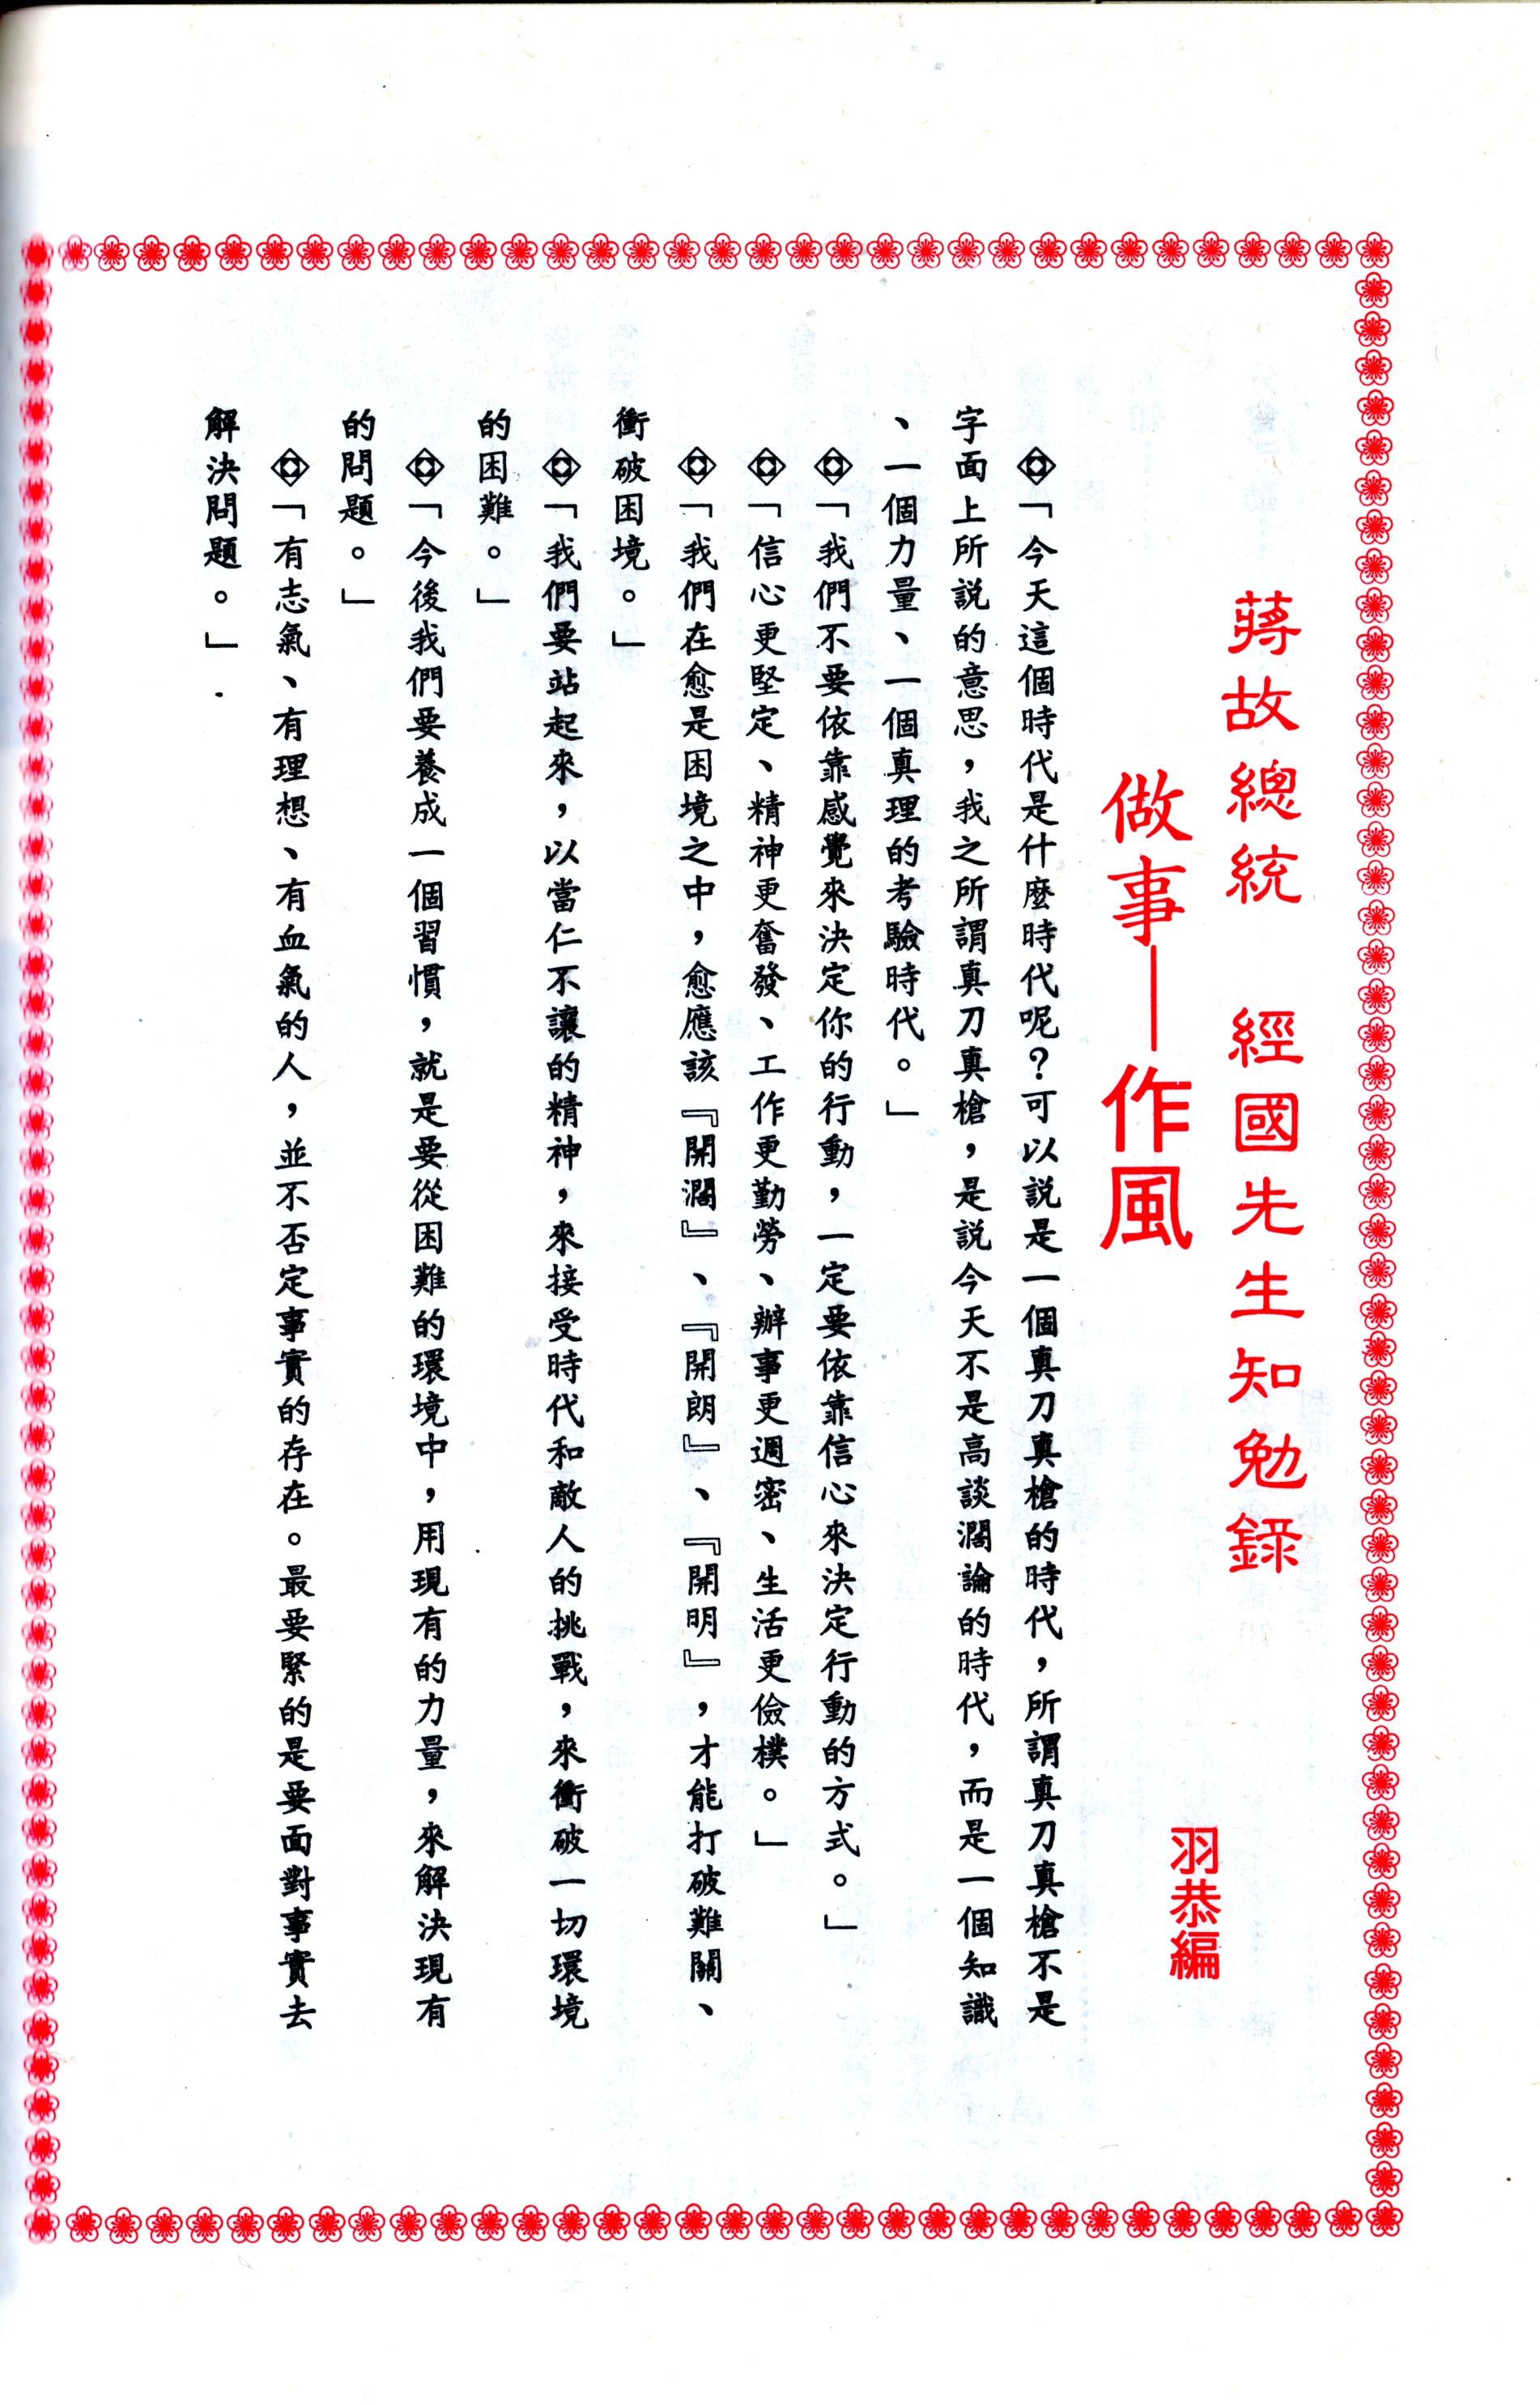 蔣故總統　經國先生知勉錄
做事—作風
羽恭編
「今天這個時代是什麼時代呢？可以說是一個真刀真槍的時代，所謂真刀真槍不是
字面上所說的意思，我之所謂真刀真槍，是說今天不是高談濶論的時代，而是一個知識
、一個力量、一個真理的考驗時代。」
「我們不要依靠感覺來決定你的行動，一定要依靠信心來決定行動的方式。」
「信心更堅定、精神更奮發、工作更勤勞、辦事更週密、生活更儉樸。」
「我們在愈是困境之中，愈應該『開濶』、『開朗』、『開明』，才能打破難關、
衝破困境。」
「我們要站起來，以當仁不讓的精神，來接受時代和敵人的挑戰，來衝破一切環境
的困難。」
「今後我們要養成一個習慣，就是要從困難的環境中，用現有的力量，來解決現有
的問題。」
「有志氣、有理想、有血氣的人，並不否定事實的存在。最要緊的是要面對事實去
解決問題。」